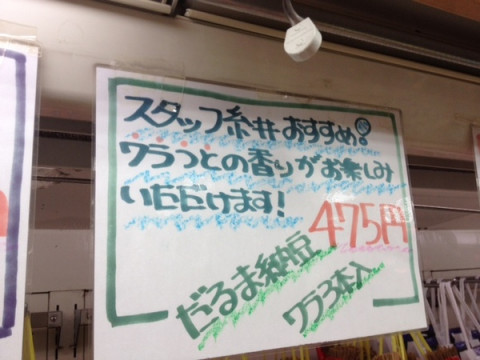 スタッフ糸井おすすめ!
ワラつとの香りがお楽しみ
いただけます!
475円
だるま納豆
ワラ3本入